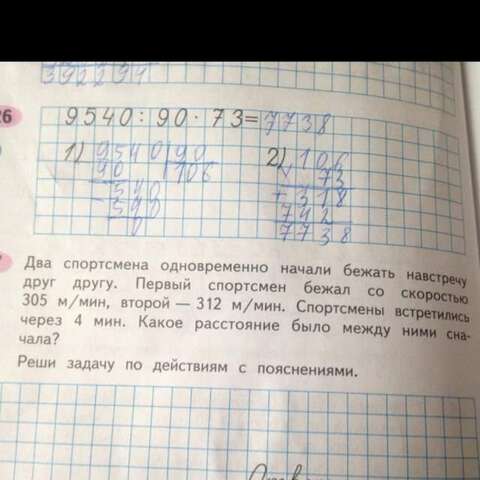 392291
26
9540 : 90 · 73 = 7738
1) 9540 90 2) 106
90 106 73
540 + 318
- 540 742
0 7738
Два спортсмена одновременно начали бежать навстречу
друг другу. Первый спортсмен бежал со скоростью
305 м/мин, второй — 312 м/мин. Спортсмены встретились
через 4 мин. Какое расстояние было между ними сна-
чала?
Реши задачу по действиям с пояснениями.